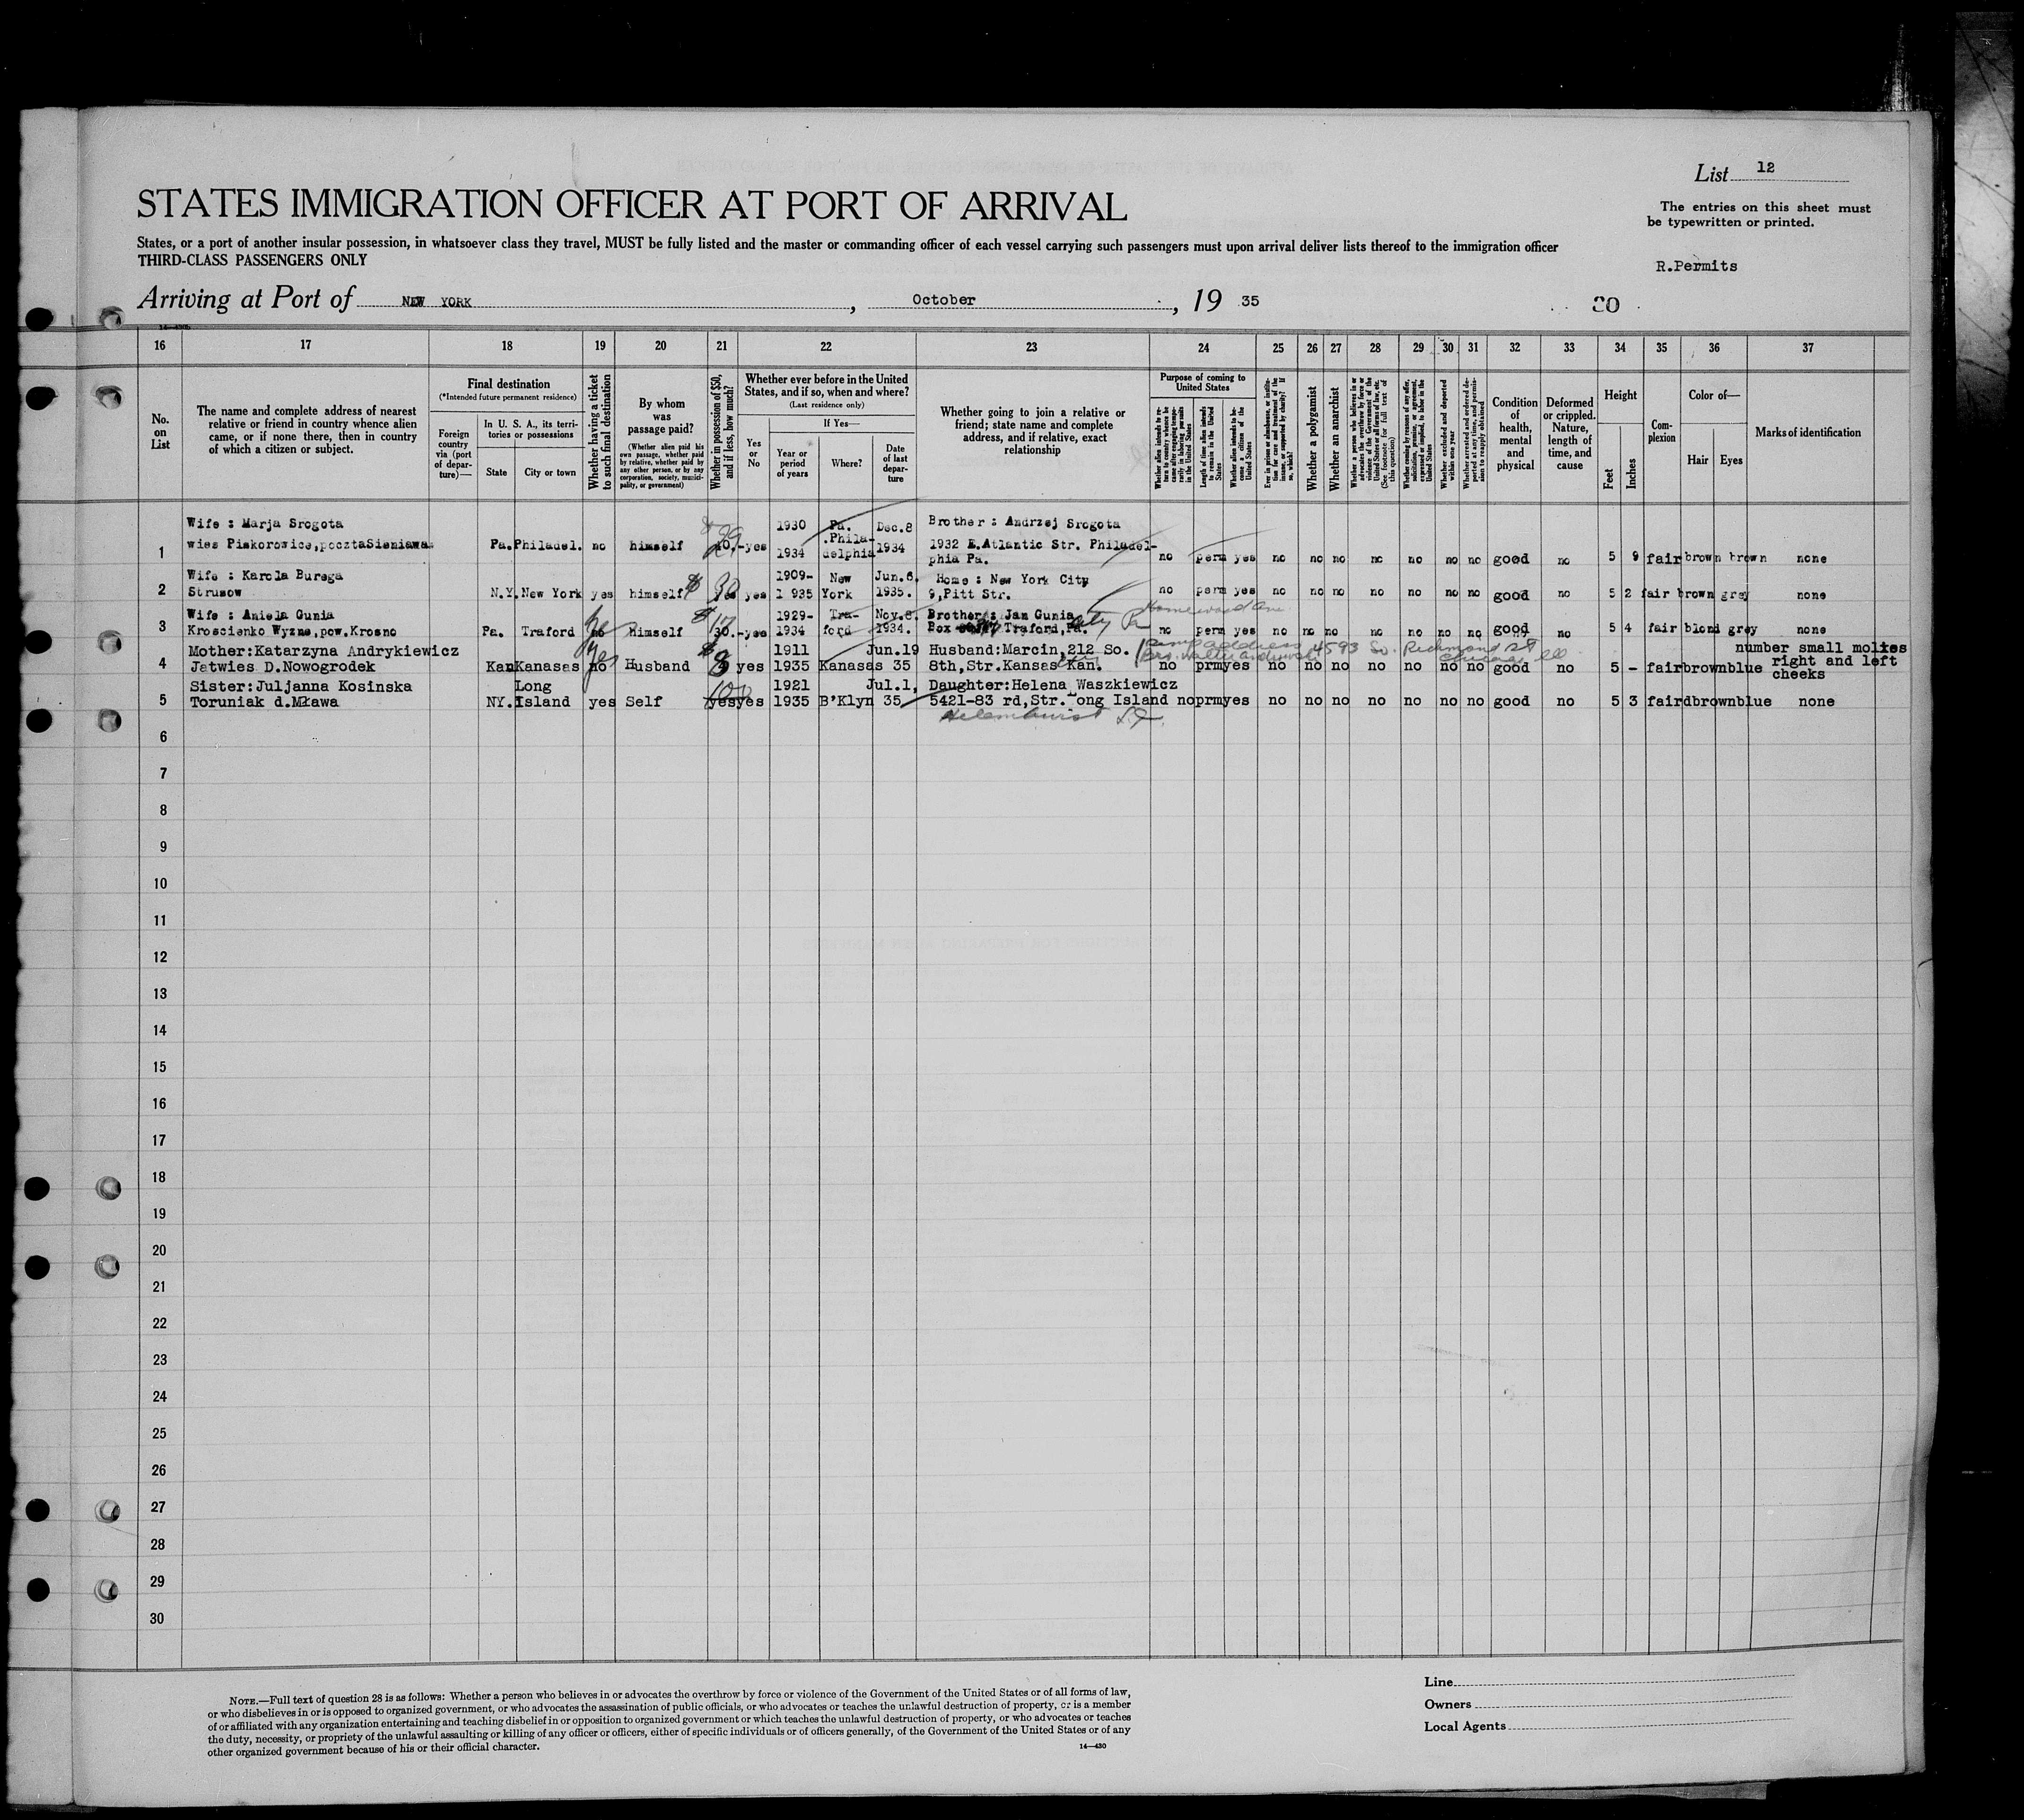 List 12
STATES IMMIGRATION OFFICER AT PORT OF ARRIVAL
The entries on this sheet must
be typewritten or printed.
States, or a port of another insular possession, in whatsoever class they travel, MUST be fully listed and the master or commanding officer of each vessel carrying such passengers must upon arrival deliver lists thereof to the immigration officer
THIRD-CLASS PASSENGERS ONLY
R.Permits
Arriving at Port of NEW YORK, October, 19 35
16 17 18 19 20 21 22 23 24 25 26 27 28 29 30 31 32 33 34 35 36 37
No. on List
The name and complete address of nearest
relative or friend in country whence alien
came, or if none there, then in country
of which a citizen or subject.
Final destination
(*Intended future permanent residence)
Foreign country via (port of departure)—
In U. S. A., its territories or possessions
State City or town
Whether having a ticket to such final destination
By whom was passage paid?
(Whether alien paid his own passage, whether paid by relative, whether paid by any other person, or by any corporation, society, municipality, or government)
Whether in possession of $50, and if less, how much?
Whether ever before in the United States, and if so, when and where?
(Last residence only)
Yes or No
If Yes—
Year or period of years
Where?
Date of last departure
Whether going to join a relative or friend; state name and complete address, and if relative, exact relationship
Purpose of coming to United States
Length of time alien intends to remain in the United States
Whether alien intends to become a citizen of the United States
Whether a polygamist
Whether an anarchist
Condition of health, mental and physical
Deformed or crippled. Nature, length of time, and cause
Height
Feet Inches
Complexion
Color of—
Hair Eyes
Marks of identification
Wife : Marja Srogota 1930 Pa. Dec.8 Brother : Andrzej Srogota
1 wies Piskorowice,pocztaSieniawa Pa. Philadel. no himself yes 1934 Philadelphia 1934 1932 E.Atlantic Str. Philadelphia Pa. no perm yes no no no no no no no good no 5 9 fair brown brown none
Wife : Karola Burega 1909- New Jun.6. Home : New York City
2 Strusow N.Y. New York yes himself $ 30 yes 1 935 York 1935. 9,Pitt Str. no perm yes no no no no no no no good no 5 2 fair brown grey none
Wife : Aniela Gunia 1929- Tra- Nov.8. Brother : Jan Gunia
3 Kroscienko Wyzne,pow.Krosno Pa. Traford no himself 30.-yes 1934 ford 1934. Box Traford,Pa. no perm yes no no no no no no no good no 5 4 fair blond grey none
Mother:Katarzyna Andrykiewicz 1911 Jun.19 Husband:Marcin,212 So. number small molies
4 Jatwies D.Nowogrodek Kan Kanasas no Husband yes 1935 Kanasas 35 8th,Str.Kansas Kan. no prm yes no no no no no no no good no 5 - fair brown blue right and left
cheeks
Sister:Juljanna Kosinska Long 1921 Jul.1, Daughter:Helena Waszkiewicz
5 Toruniak d.Mława NY. Island yes Self yes yes 1935 B'Klyn 35 5421-83 rd,Str. ong Island no prm yes no no no no no no no good no 5 3 faird brown blue none
6
7
8
9
10
11
12
13
14
15
16
17
18
19
20
21
22
23
24
25
26
27
28
29
30
NOTE.—Full text of question 28 is as follows: Whether a person who believes in or advocates the overthrow by force or violence of the Government of the United States or of all forms of law,
or who disbelieves in or is opposed to organized government, or who advocates the assassination of public officials, or who advocates or teaches the unlawful destruction of property, or is a member
of or affiliated with any organization entertaining and teaching disbelief in or opposition to organized government or which teaches the unlawful destruction of property, or who advocates or teaches
the duty, necessity, or propriety of the unlawful assaulting or killing of any officer or officers, either of specific individuals or of officers generally, of the Government of the United States or of any
other organized government because of his or their official character.
14—430
Line
Owners
Local Agents